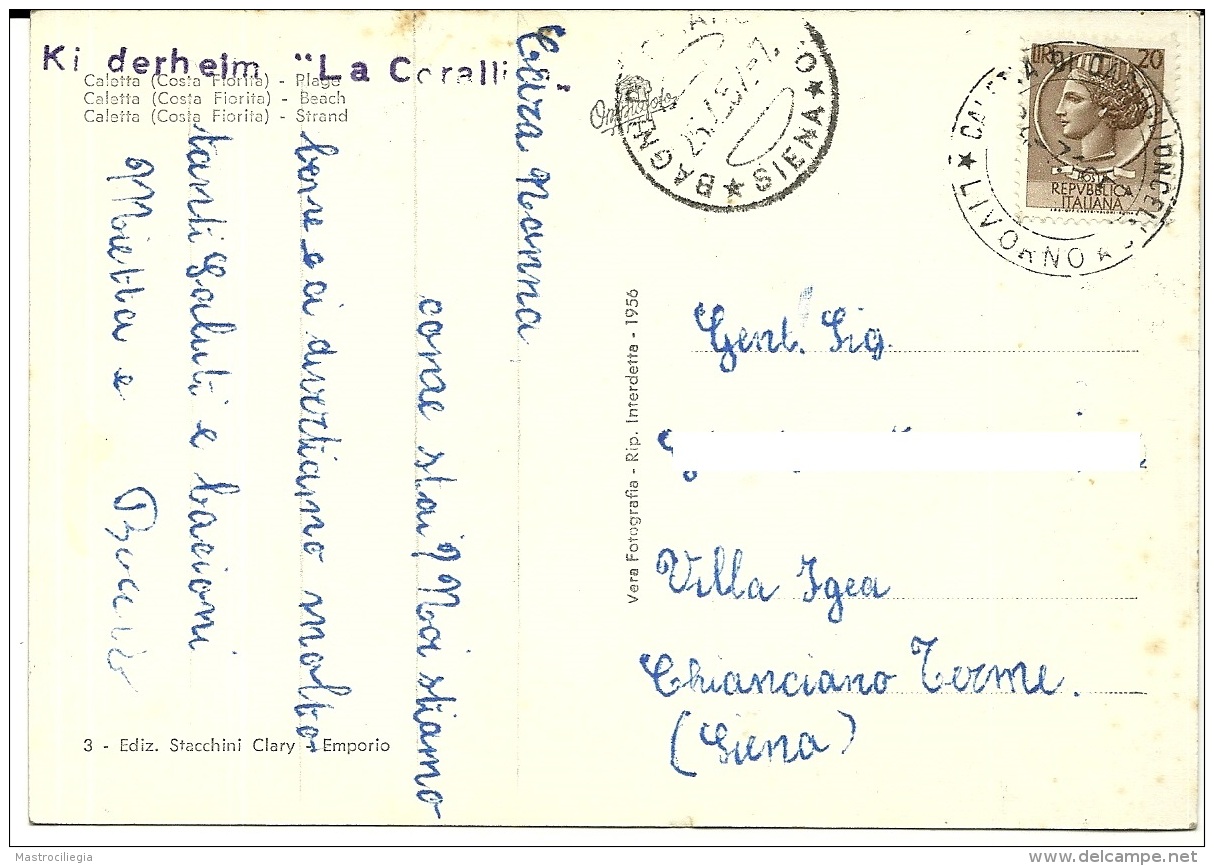 Kinderheim "La Corallina"
Caletta (Costa Fiorita) - Plage
Caletta (Costa Fiorita) - Beach
Caletta (Costa Fiorita) - Strand
Cara Nonna
come stai? Noi stiamo
bene e ci divertiamo molto
tanti saluti e bacioni
Mietta e
3 - Ediz. Stacchini Clary - Emporio
Vera Fotografia - Rip. Interdetta - 1956
BAGNI
★ SIENA ★
LIRE 20
POSTE
REPVBBLICA
ITALIANA
★ LIVORNO ★
Gent. Sig.
Villa Igea
Chianciano Terme.
(Siena)
Mastrociliegia
www.delcampe.net